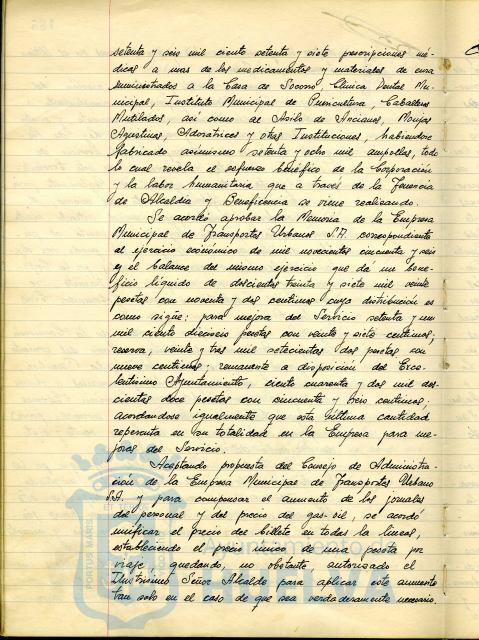 setenta y seis mil ciento setenta y siete prescripciones mé-
dicas a mas de los medicamentos y materiales de cura
suministrados a la Casa de Socorro, Clínica Dental Mu-
nicipal, Instituto Municipal de Puericultura, Caballeros
Mutilados, asi como al Asilo de Ancianos, Monjas
Agustinas, Adoratrices y otras Instituciones, habiendose
fabricado asimismo setenta y ocho mil ampollas, todo
lo cual revela el esfuerzo benéfico de la Corporación
y la labor humanitaria que a través de la Tenencia
de Alcaldía y Beneficencia se viene realizando.
Se acordó aprobar la Memoria de la Empresa
Municipal de Transportes Urbanos S.A. correspondiente
al ejercicio económico de mil novecientos cincuenta y seis
y el balance del mismo ejercicio que dá un bene-
ficio líquido de doscientas treinta y siete mil veinte
pesetas con noventa y dos centimos cuya distribución es
como sigue: para mejora del Servicio setenta y un
mil ciento dieciseis pesetas con veinte y siete centimos;
reserva, veinte y tres mil setecientas dos pesetas con
nueve centimos; remanente a disposición del Exce-
lentisimo Ayuntamiento, ciento cuarenta y dos mil dos-
cientas doce pesetas con cincuenta y seis centimos;
acordandose igualmente que esta última cantidad
reperenta en su totalidad en la Empresa para me-
joras del Servicio.
Aceptando propuesta del Consejo de Administra-
ción de la Empresa Municipal de Transportes Urbanos
S.A. y para compensar el aumento de los jornales
del personal y del precio del gas-oil, se acordó
unificar el precio del billete en todas la lineas,
estableciendo el precio único de una peseta por
viaje, quedando, no obstante, autorizado el
Ilustrisimo Señor Alcalde para aplicar este aumento
tan solo en el caso de que sea verdaderamente necesario.
PORTUS MARIS